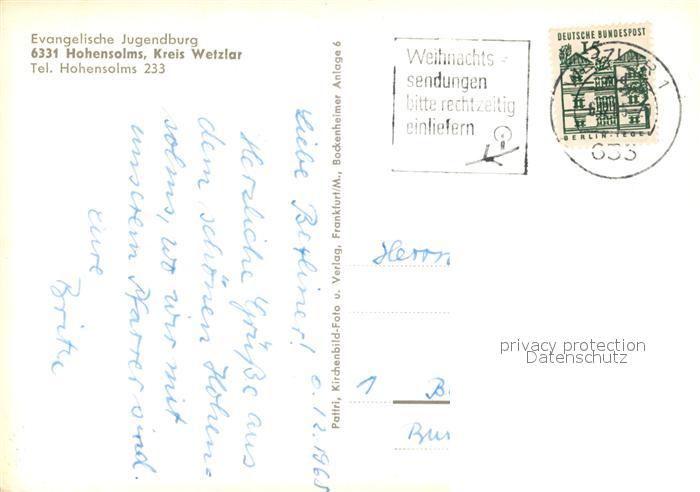 Evangelische Jugendburg
6331 Hohensolms, Kreis Wetzlar
Tel. Hohensolms 233
Weihnachts-
sendungen
bitte rechtzeitig
einliefern
DEUTSCHE BUNDESPOST
15
BERLIN-TEGEL
633
Liebe Berliner!
Herzliche Grüße aus
dem schönen Hohen=
solms, wo wir mit
unserem Pfarrer sind.
Eure
Pattri, Kirchenbild-Foto u. Verlag, Frankfurt/M., Bockenheimer Anlage 6
Herrn
1
privacy protection
Datenschutz